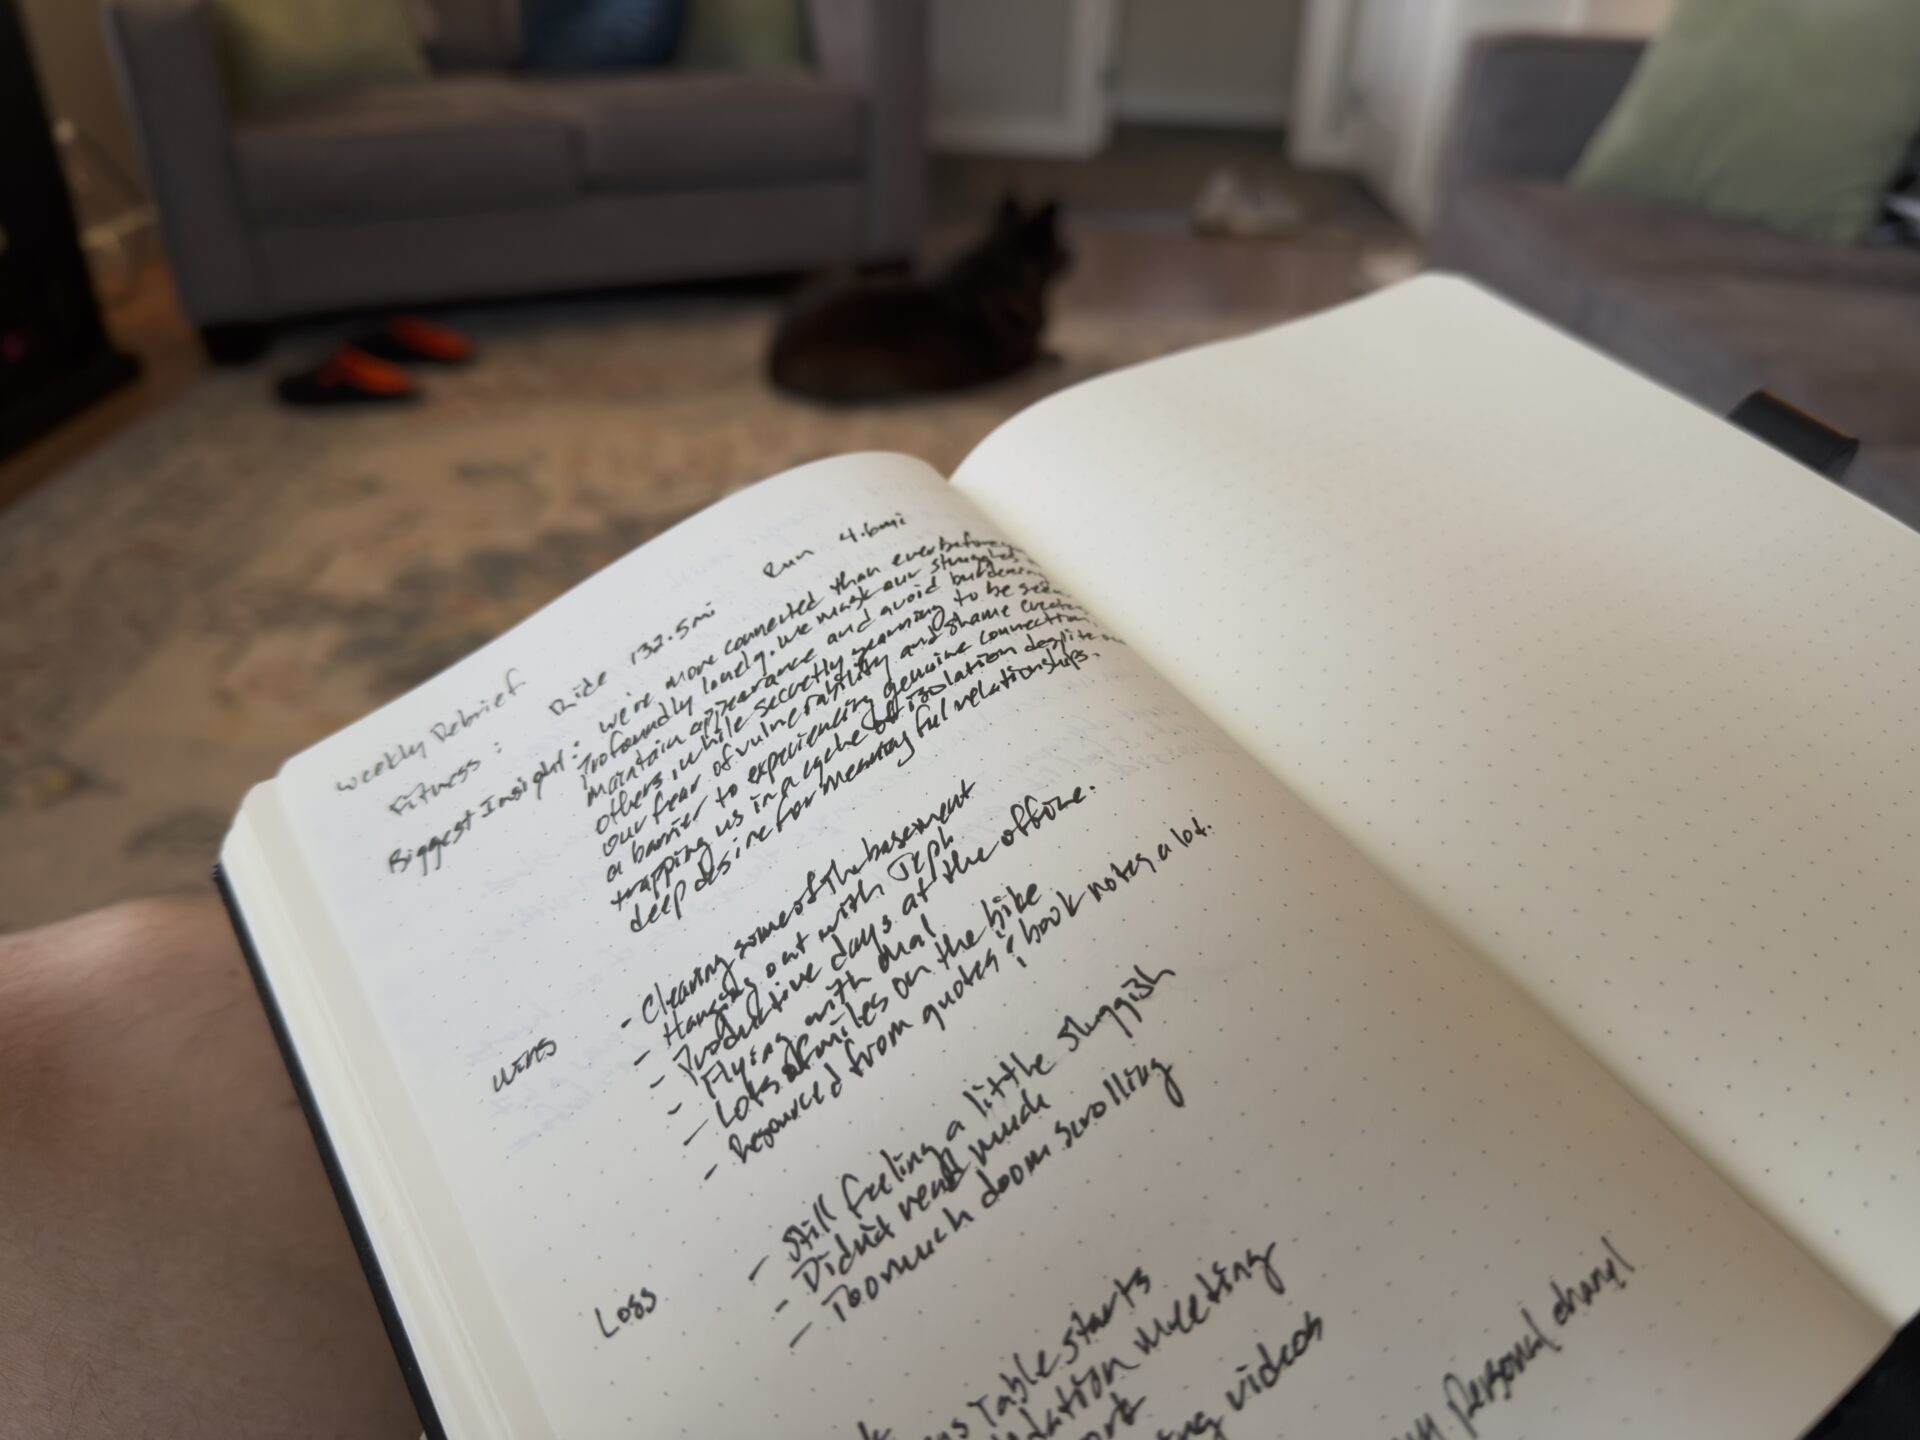 Weekly Debrief
Fitness: Ride 132.5mi Run 4.6mi
Biggest Insight: we're more connected than ever before
Profoundly lonely. we mask our struggles
maintain appearance and avoid burdening
others, while secretly yearning to be seen
our fear of vulnerability and shame creates
a barrier to experiencing genuine connection,
trapping us in a cycle of isolation despite
deep desire for meaningful relationships.
wins - Cleaning some of the basement
- Hanging out with Jeph
- Productive days at the office.
- Flying with dual
- Lots of miles on the bike
- Resourced from quotes & book notes a lot.
Loss - Still feeling a little sluggish
- Didn't read much
- Too much doom scrolling
Table starts
meeting
videos
personal